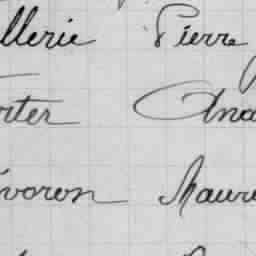 llerie Pierre
rter And
voron Mauri